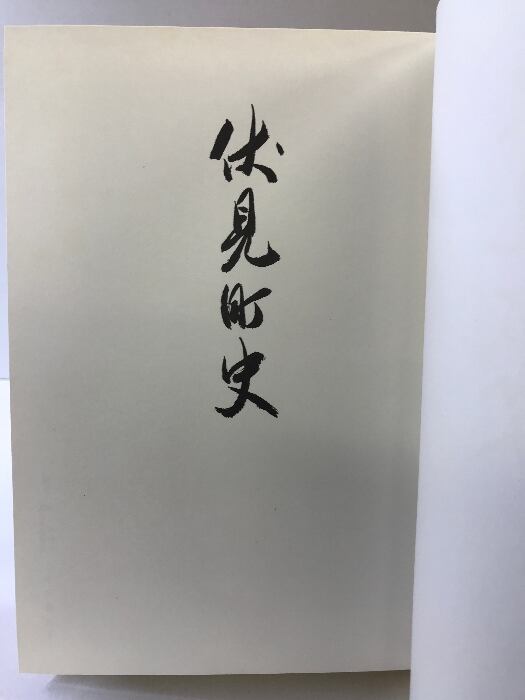 伏見町史